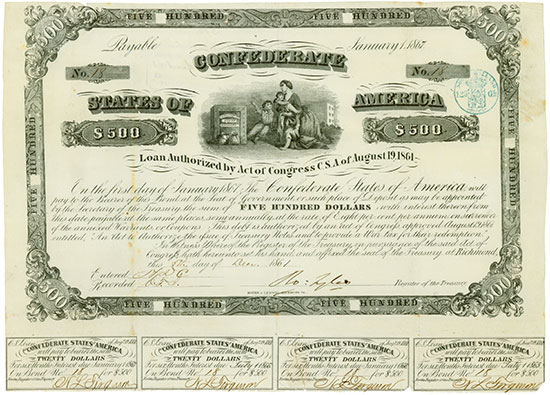 FIVE HUNDRED
500 500
Payable January 1, 1867
No. 18 CONFEDERATE No. 18
STATES OF AMERICA
$500 $500
Loan Authorized by Act of Congress C.S.A of August 19, 1861
On the first day of January 1867, The Confederate States of America will
pay to the Bearer of this Bond at the Seat of Government, or such place of Deposit as may be appointed
by the Secretary of the Treasury the sum of FIVE HUNDRED DOLLARS with interest thereon from
this date, payable at the same places, semi annually, at the rate of Eight per cent. per annum, on surrender
of the annexed Warrants or Coupons. This debt is authorized by an Act of Congress approved August 19, 1861
entitled, "An Act to Authorize the issue of Treasury Notes, and to provide a War Tax for their redemption."
In Witness Whereof the Register of the Treasury, in pursuance of the said Act of
Congress, hath hereunto set his hand, and affixed the seal of the Treasury, at Richmond,
this day of 1861
Entered
Recorded Register of the Treasury
FIVE HUNDRED
FIVE HUNDRED
FIVE HUNDRED
500 500
CONFEDERATE STATES AMERICA
will pay to bearer
TWENTY DOLLARS
For six months Interest due January 1, 1867
On Bond No. 18 for $500
CONFEDERATE STATES AMERICA
will pay to bearer
TWENTY DOLLARS
For six months Interest due July 1, 1866
On Bond No. 18 for $500
CONFEDERATE STATES AMERICA
will pay to bearer
TWENTY DOLLARS
For six months Interest due January 1, 1866
On Bond No. 18 for $500
CONFEDERATE STATES AMERICA
will pay to bearer
TWENTY DOLLARS
For six months Interest due July 1, 1865
On Bond No. 18 for $500